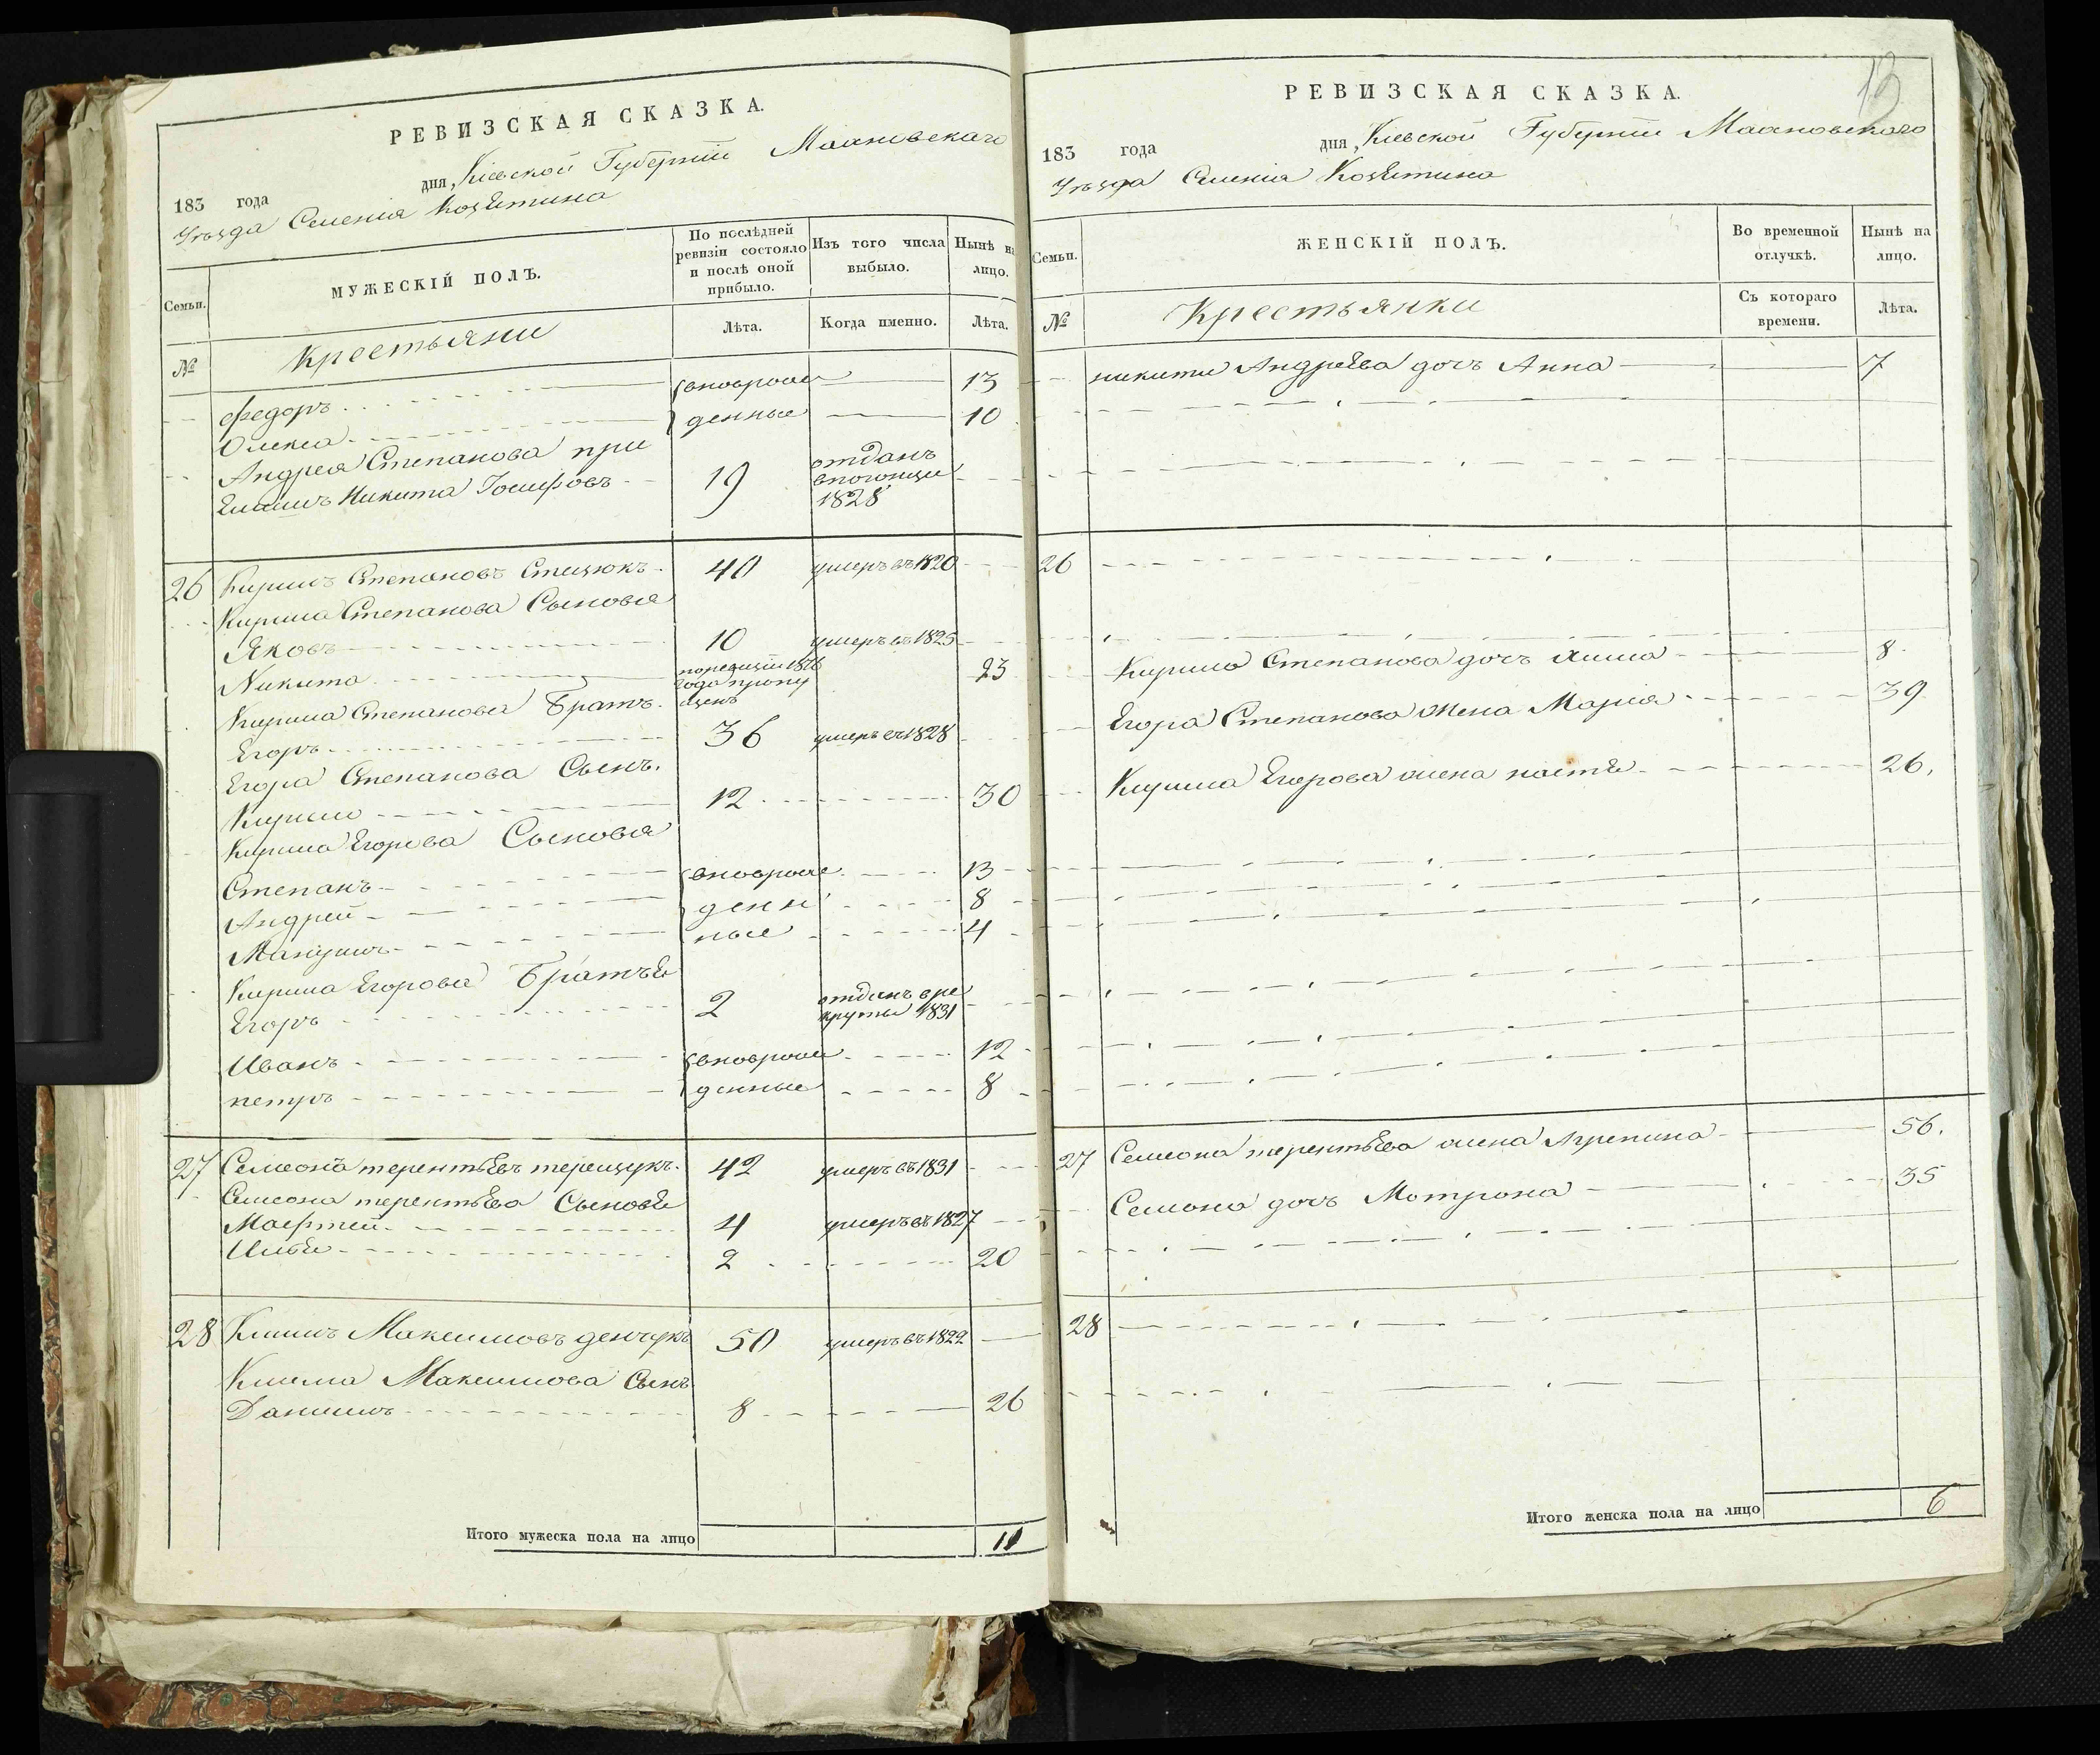 РЕВИЗСКАЯ СКАЗКА.
183 года дня Кіевской Губерніи Махновскаго
Уѣзда Селенія Козѣтина
Семьи.
МУЖЕСКІЙ ПОЛЪ.
По послѣдней ревизіи состояло и послѣ оной прибыло.
Изъ того числа выбыло.
Нынѣ на лицо.
№
Крестьяни
Лѣта.
Когда именно.
Лѣта.
Федоръ новорож 13
Олекса денные 10
Андрея Степанова при
Емышъ Никита Іосифовъ 19 отданъ
1828
26 Кирилъ Степановъ Стецюкъ 40 умеръ въ 1820
Кирила Степанова Сыновья
Яковъ 10 умеръ въ 1825
Никита 23
года пропу
щенъ
Кирила Степанова Братъ
Егоръ 36 умеръ въ 1828
Егора Степанова Сынъ.
Кирило 12 30
Кирила Егорова Сыновья
Степанъ вноврож 13
Андрей ден 8
Мануилъ ные 4
Кирила Егорова Братьѣ
Егоръ 2 отданъ в ре
круты 1831
Иванъ вноврож 12
петръ денные 8
27 Семіонъ терентьѣвъ терещукъ 42 умеръ въ 1831
Семіона терентьѣва Сыновѣ
Мафтей 4 умеръ въ 1827
Ильѣ 2 20
28 Климъ Максимовъ денчукъ 50 умеръ въ 1822
Клима Максимова Сынъ
Данилъ 8 26
Итого мужеска пола на лицо 11
13
РЕВИЗСКАЯ СКАЗКА.
183 года дня Кіевской Губерніи Махновскаго
Уѣзда Селенія Козѣтина
Семьи.
ЖЕНСКІЙ ПОЛЪ.
Во временной отлучкѣ.
Нынѣ на лицо.
№
Крестьянки
Съ котораго времени.
Лѣта.
никити Андрѣева дочь Анна 7
26
Кирило Степанова дочь 8
Егора Степанова жена Марія 39
Кирила Егорова жена настѣ 26.
27 Семіона терентьѣва жена Агрепина 56.
Семіона дочь Мотрона 35
28
Итого женска пола на лицо 6